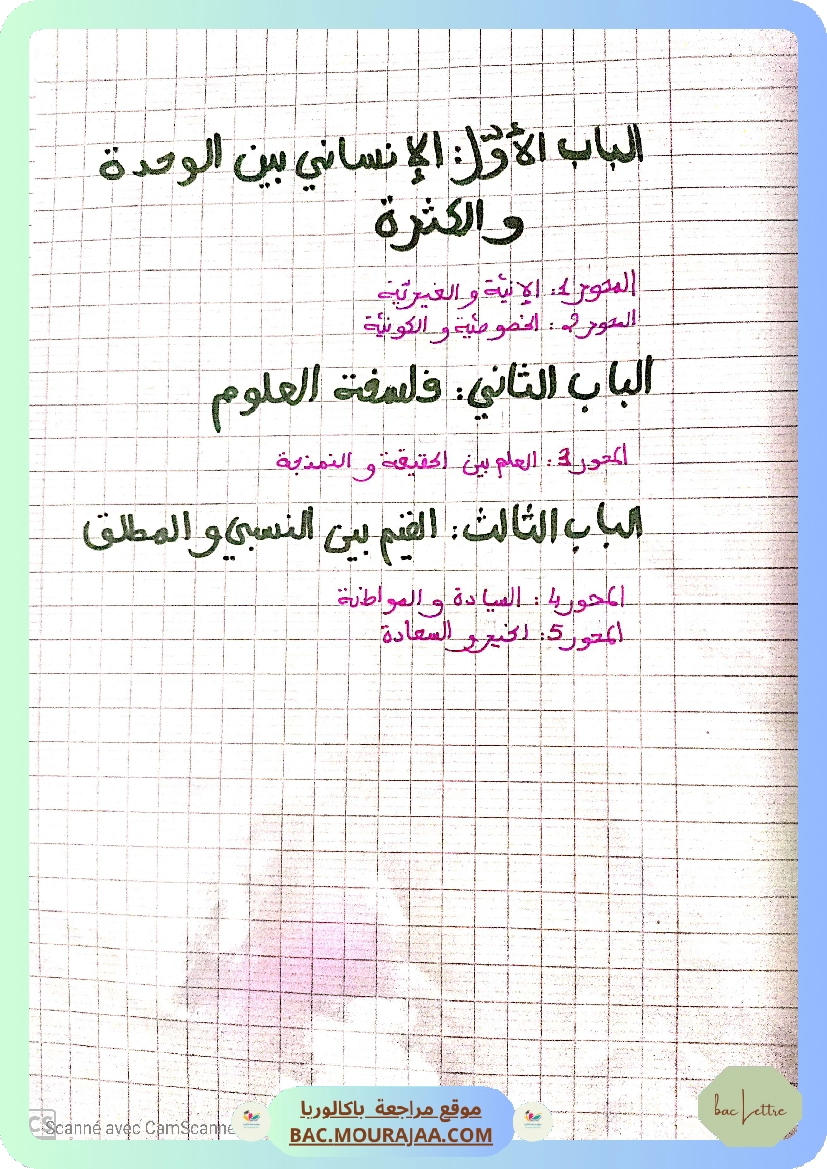 الباب الأوّل: الإنساني بين الوحدة
والكثرة
المحور1: الإنيّة والغيريّة
المحور2: الخصوصيّة والكونيّة
الباب الثاني: فلسفة العلوم
المحور3: العلم بين الحقيقة و النمذجة
الباب الثالث: القيم بين النسبي والمطلق
المحور4: السيادة والمواطنة
المحور5: الخير و السعادة
bac Lettre
موقع مراجعة باكالوريا
BAC.MOURAJAA.COM
CS Scanné avec CamScanne